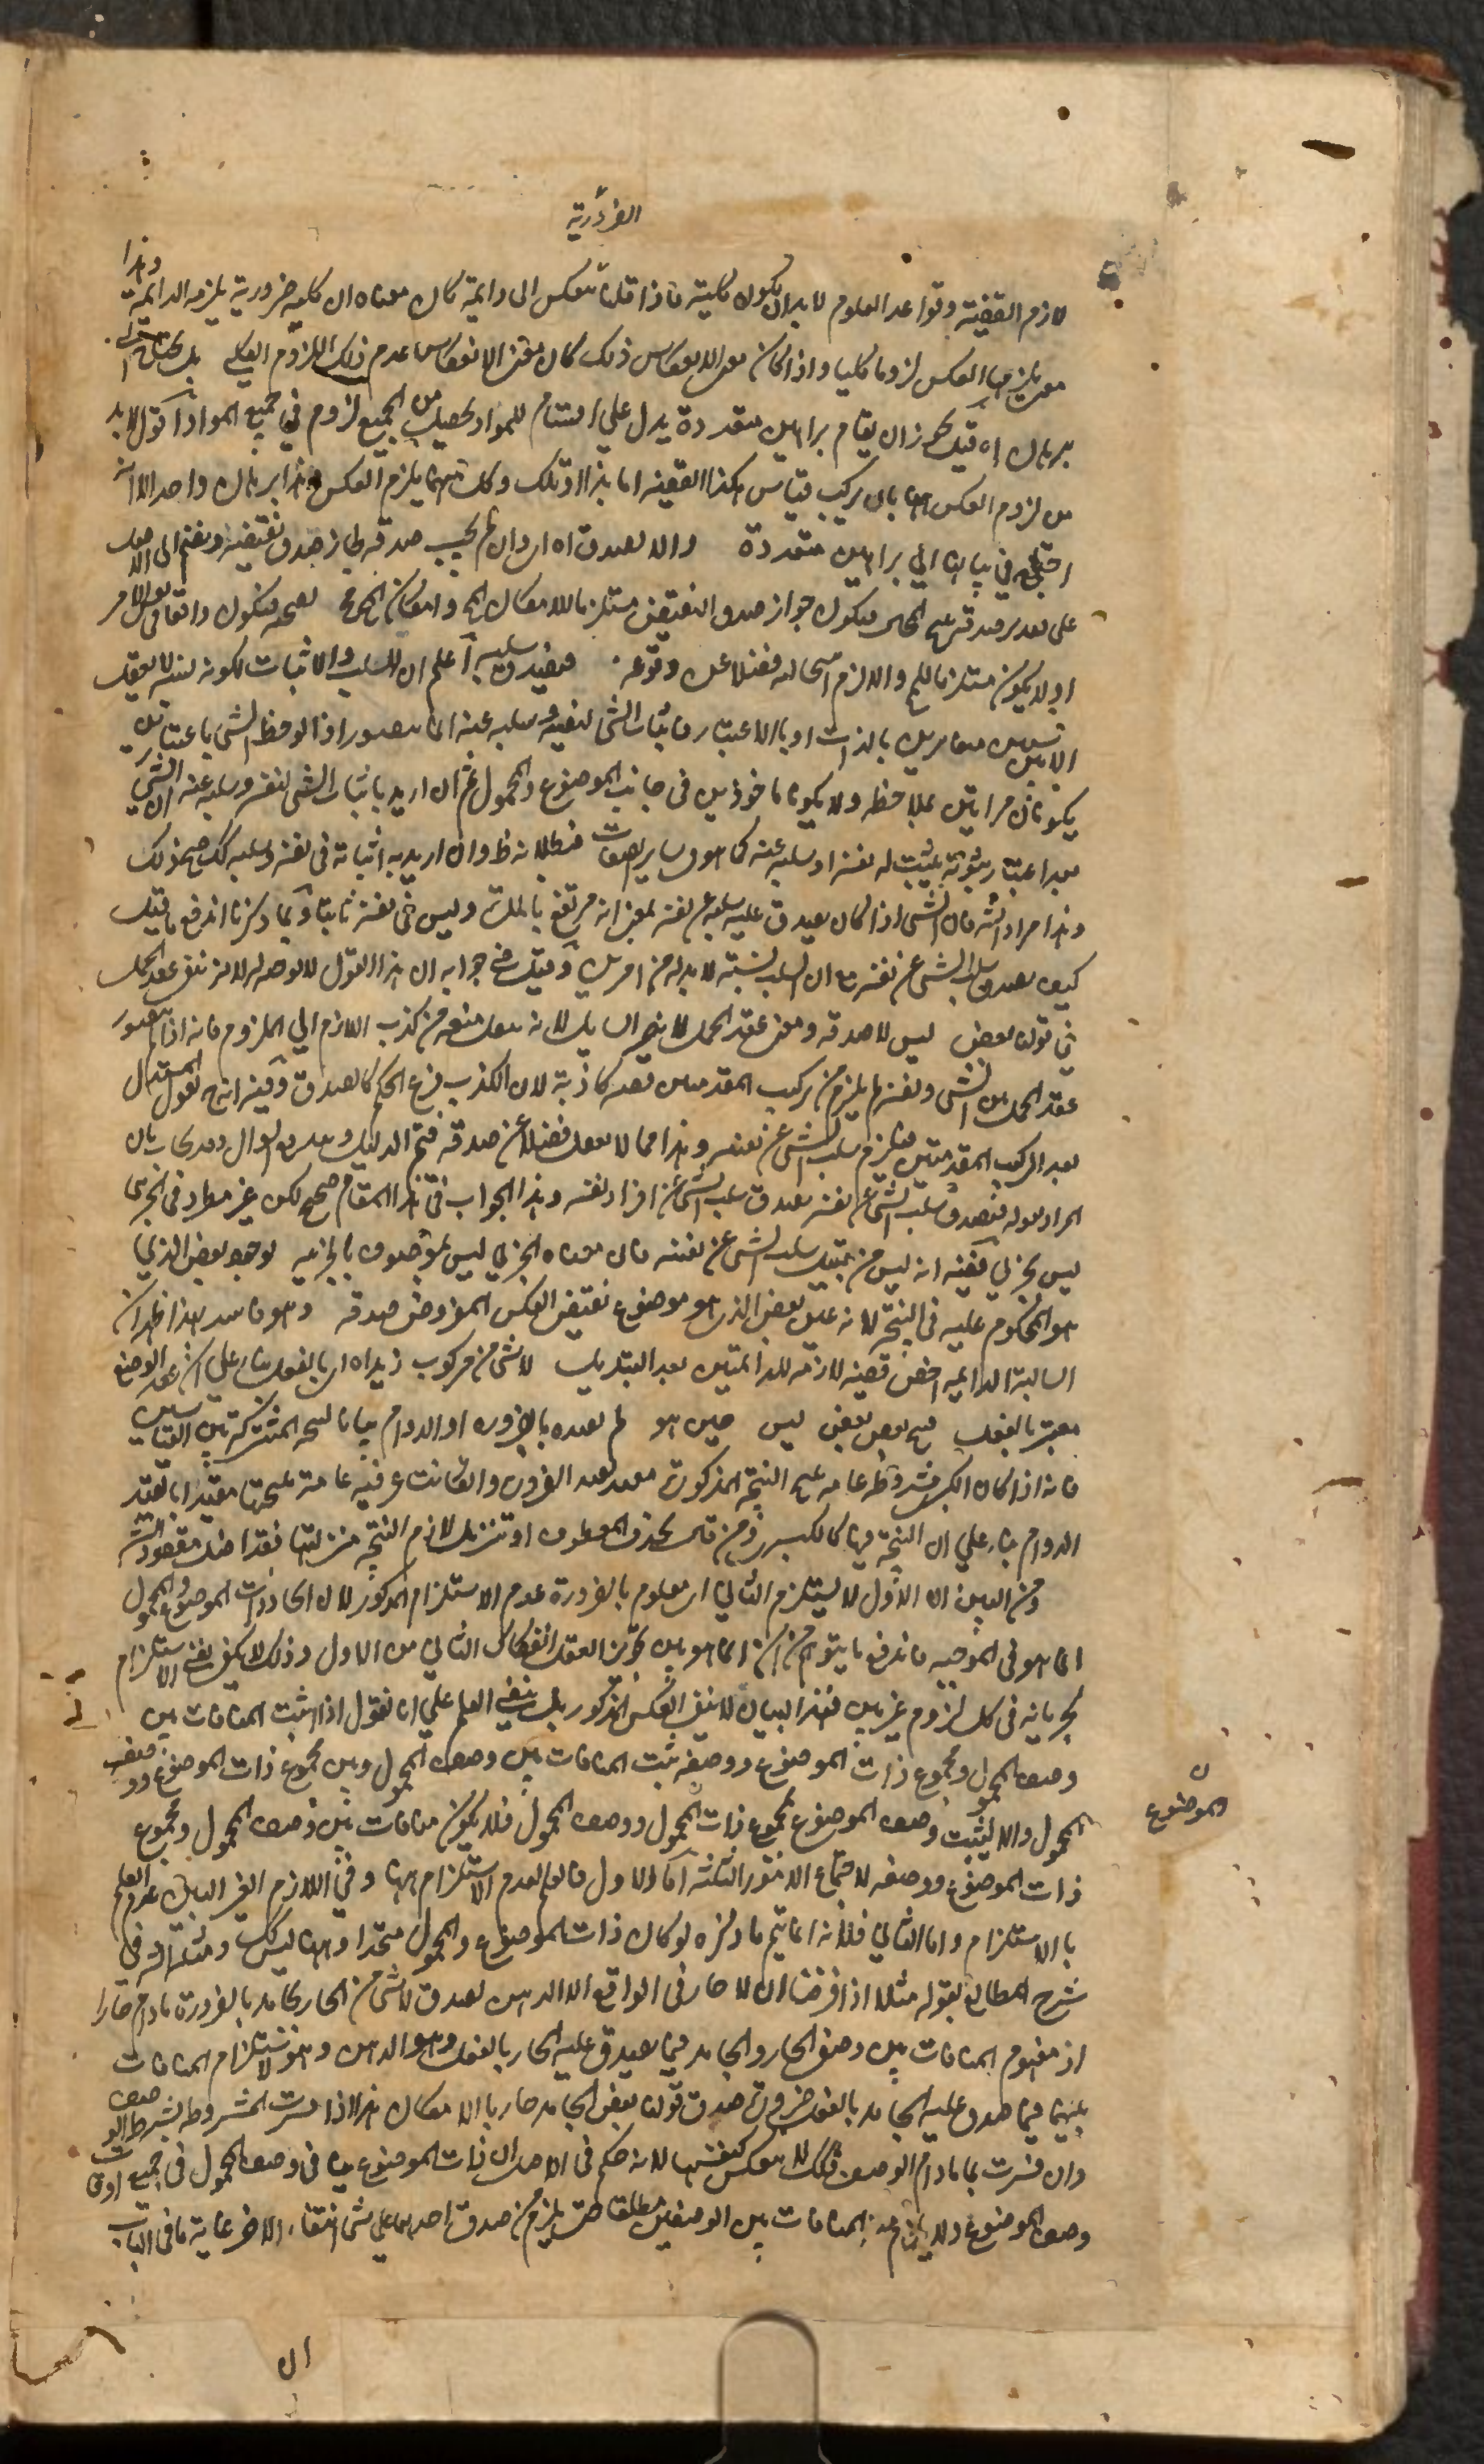 الضرورية
لازم القضية وقواعد العلوم لا بد ان يكون كلية فاذا قلنا تنعكس الى دائمة كان معناه ان كل ضرورية يلزمه الدائمة وهذا
العكس لزوما كليا واذا كان معنى الانعكاس ذلك كان معنى الانعكاس عدم ذلك اللزوم الكلي
برهان اه قيل يجوز ان يقام براهين متعددة يدل على اقسام المواد يحصل من الجميع لزوم في جميع المواد اقول لا بد
من لزوم العكس بان يركب قياس هكذا القضية اما هذا او تلك وكل منهما يلزم العكس وهذا برهان واحد الا انه
احتيج في بيانه الى براهين متعددة والا لصدق اه اي وان لم يجب صدقه لجاز صدق نقيضه ويضم الى الاصل
على تقدير صدقه ينتج المحال فيكون جواز صدق النقيض مستلزما لامكان المحال وامكان المحال محال
اولا يكون مستلزما للمحال واللازم استحالته فضلا عن وقوعه فيصدق سلبه اعلم ان السلب والاثبات لكونه نسبة لا يعقل
الا بين متغايرين بالذات او بالاعتبار فاثبات الشيء لنفسه وسلبه عنه انما يتصور اذا لوحظ الشيء باعتبارين
يكونان مرآتين لملاحظه ولا يكونا ماخوذين في جانب الموضوع والمحمول ثم ان اريد باثبات الشيء لنفسه وسلبه عنه ان الشيء
بعد اعتبار ثبوته يثبت له نفسه او سلبه عنه كما هو في ساير الصفات فبطلانه ظ وان اريد به اثباته في نفسه وسلبه كك صح ذلك
وهذا مراد الش فان الشيء اذا كان يصدق عليه سلبه عن نفسه بمعنى انه مرتفع بالمرة وليس في نفسه ثابتا وبما ذكرنا اندفع ما قيل
كيف يصدق سلب الشيء عن نفسه مع ان السلب نسبة لا بد له من امرين وقيل في جوابه ان هذا القول لا وجه له لانه منع عقد الحمل
في قوله بعض ليس لا صدقه ومنع عقد الحمل لا يضر السايل لانه ينقل منعه من كذب اللازم الى الملزوم فانه اذا لم يتصور
عقد الحمل بين الشيء ونفسه لم يلزم من تركيب المقدمتين قضية كاذبة لان الكذب فرع الحكم كالصدق وفيه انه يقول المستدل
بعد تركيب المقدمتين يلزم سلب الشيء عن نفسه وهذا مما لا يعقل فضلا عن صدقه فتم الدليل ويندفع السوال وقد يجاب بان
المراد بقوله فيصدق سلب الشيء عن نفسه يصدق سلب الشيء عن افراد نفسه وهذا الجواب في هذا المقام صحيح لكن غير مطرد في الجزئي
ليس بجزئي لقضية انه ليس من قبيل سلب الشيء عن نفسه فان معناه الجزئي ليس بموصوف بالجزئية لوجود بعض الذي
هو المحكوم عليه في النتيجة لانه عين بعض الذي هو موضوع نقيض العكس المفروض صدقه وهو فاسد لهذا ظهر ان
السالبة الدائمة اخص قضية لازمة للدائمتين بعد التبديل لا شيء من مركوب زيد اه اي بالفعل بناء على ان عقد الوضع
معتبر بالفعل فينتج بعض بعض ليس حين هو لم يقيده بالضرورة او الدوام بيانا للنتيجة المشتركة بين القياسين
فانه اذا كان الكبرى مشروطة عامة ينتج النتيجة المذكورة مقيد بقيد الضرورة واذا كانت عرفية عامة ينتجها مقيدا بقيد
الدوام بناء على ان النتيجة فيهما كالكبرى ومن قال بحذف المعطوف او تنزيل لازم النتيجة منزلتها فقد اخل مقصود الش
ومن البين ان الاول لا يستلزم الثاني اي معلوم بالضرورة عدم الاستلزام المذكور لان اتحاد ذات الموضوع والمحمول
انما هو في الموجبة فاندفع ما يتوهم من ان انما هو بين تجويز العقل انفكاك الثاني من الاول وذلك لا يكفي لنفي الاستلزام
لجريانه في كل لزوم غير بين فهذا البيان لا ينفي العكس المذكور بل ينفي العلم على انا نقول اذا ثبت المنافات بين
وصف المحمول ومجموع ذات الموضوع ووصفه ثبت المنافات بين وصف المحمول وبين مجموع ذات الموضوع ووصف
المحمول والا ليثبت وصف الموضوع لمجموع ذات المحمول ووصف المحمول فلا يكون منافات بين وصف المحمول ومجموع
والموضوع
ذات الموضوع ووصفه لاجتماع الامور الثلثة اما الاول فالعلم بعدم الاستلزام وفي اللازم الغير البين عدم العلم
بالاستلزام واما الثاني فلانه انما يتم ما ذكره لو كان ذات الموضوع والمحمول متحدا وههنا ليس كك ومثله في
شرح المطالع بقوله مثلا اذا فرضنا ان لا حار في الواقع الا الدهن يصدق لا شيء من الحار بجامد بالضرورة مادام حارا
اذ مفهوم المنافات بين وصفي الحار والجامد فيما يصدق عليه الحار بالفعل وهو الدهن وهو لا يستلزم المنافات
بينهما فيما صدق عليه الجامد بالفعل ضرورة صدق قولنا بعض الجامد حار بالامكان هذا اذا فسرت المشروطة بشرط الوصف
وان فسرت بما مادام الوصف فكك لا ينعكس كنفسها لانه حكم في الاصل ان ذات الموضوع ينافي وصف المحمول في جميع اوقات
وصف الموضوع ولا يلزم منه المنافات بين الوصفين مطلقا حتى يلزم من صدق احدهما على شيء انتفاء الاخر غاية ما في الباب
ان